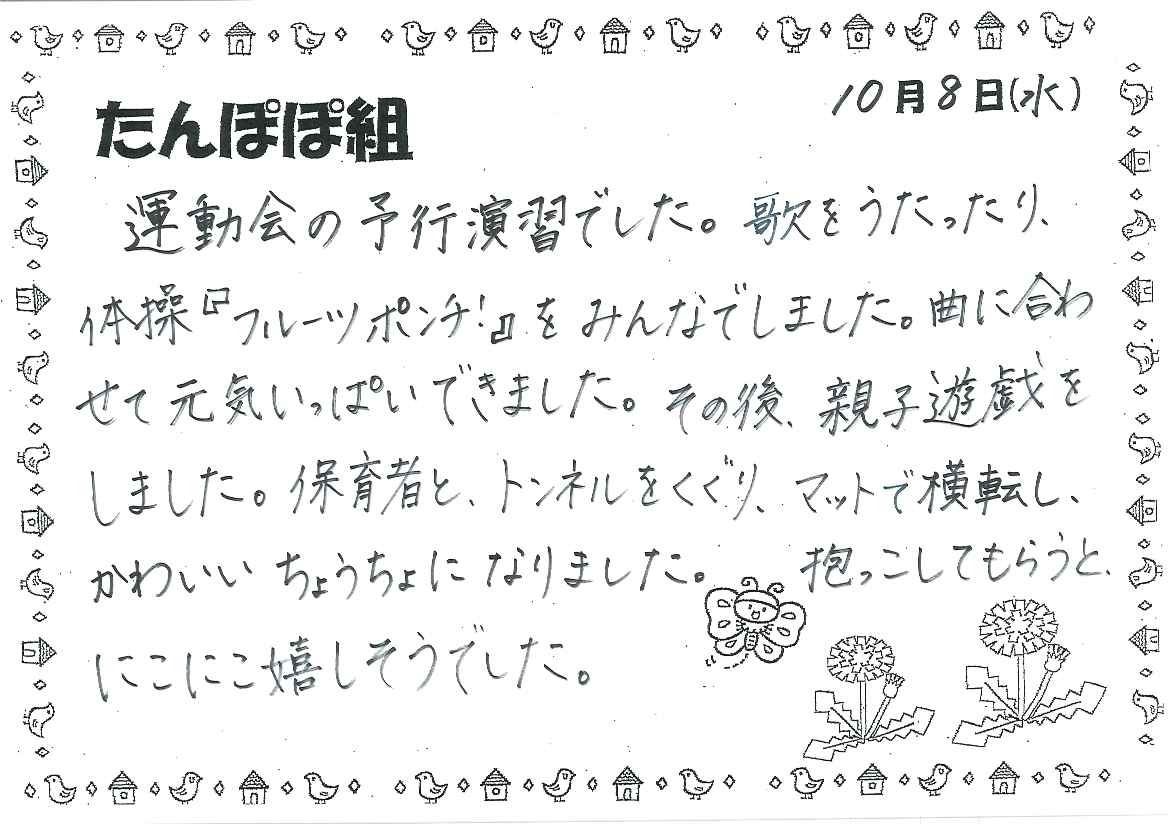 10月8日(水)
たんぽぽ組
運動会の予行演習でした。歌をうたったり、
体操『フルーツポンチ!』をみんなでしました。曲に合わ
せて元気いっぱいできました。その後、親子遊戯を
しました。保育者と、トンネルをくぐり、マットで横転し、
かわいいちょうちょになりました。 抱っこしてもらうと、
にこにこ嬉しそうでした。